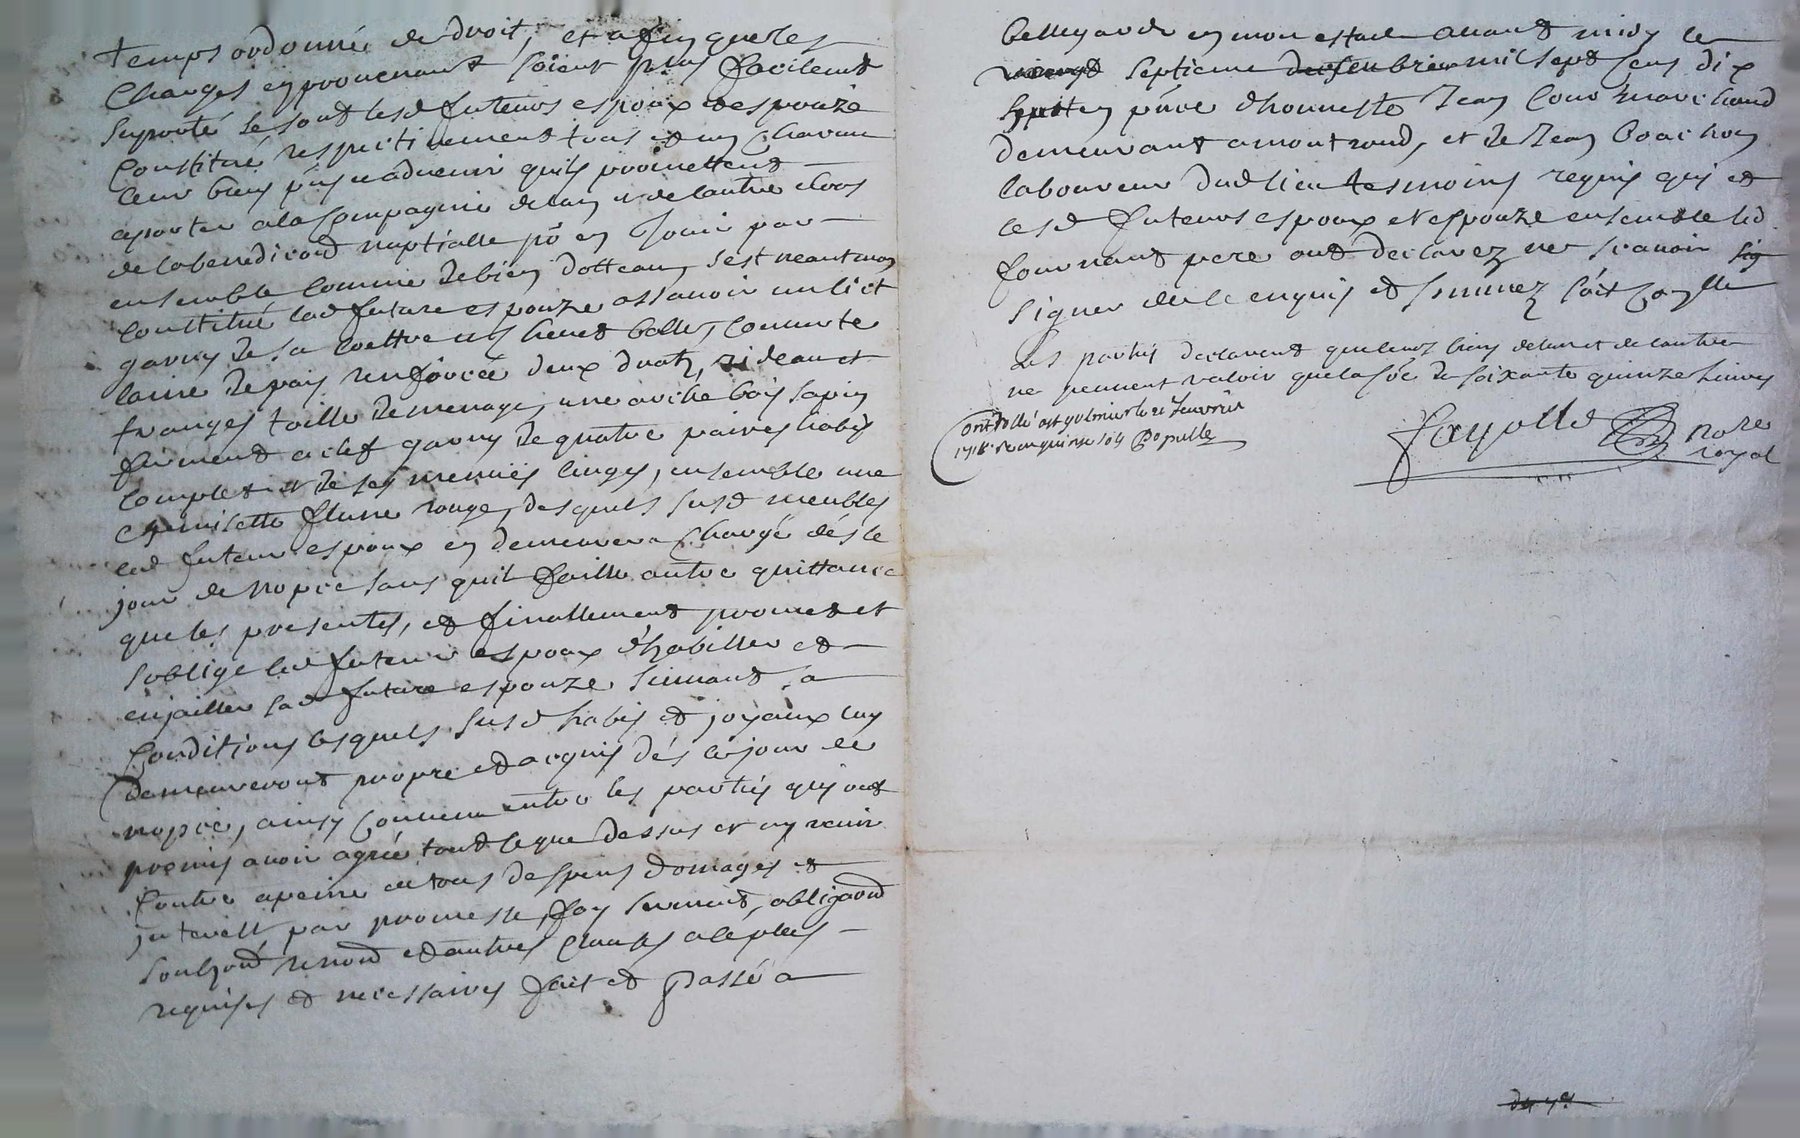 temps ordonné de droit, et afin que les
charges en provenant soient plus facilemt
suporté se sont lesd futeurs espoux et espouze
constitué respectivement tous et un chacun
leur biens pñs et advenir quils promettent
aporter a la compagnie de lun et de lautre lhors
de la benediction nuptialle pō en jouir par
ensemble comme de bien dottaux, sest neantmoins
constitué lad future espouze assavoir un lict
garny de sa coettre cuissinet balle, couverte
laine de pais renforcée deux drats, rideau et
franges toille de menage, une arche bois sapin
fermant a clef garny de quatre paires habis
complet et de ses menuës linges, ensemble une
chemisette sleine rouge, desquels susd meubles
led futeur espoux en demeurera chargé dés le
jour de nopce sans quil faille autre quittance
que les presentes, et finallement promet et
soblige led futeur espoux dhabiller et
enjailler sad future espouze suivant sa
conditions lesquels susd habis et joyaux luy
demeureront propre et acquis dés le jour de
nopce, ainsy convenu entre les parties qui ont
promis avoir agreé tout ce que dessus et ny venir
contre a peine de tous despens domages et
interest par promesse, foy serment, obligaond
soubzond renond et autres clauses a ce plus
requises et necessaires fait et passé a
bellegarde en mon estude avant midy le
septieme mil sept cens dix
sept en pñce dhonneste Jean Cour marchand
demeurant a montrond, et de Jean Coachon
laboureur dud lieu tesmoins requis qui et
lesd futeurs espoux et espouze ensemble led
fournant pere ont declarez ne scavoir sig
signer de ce enquis et sommez soit conlle
Les parties declarent que leurs biens de lun et de lautre
ne peuvent valoir que la sōe de soixante quinze livres
Controllé a st galmier le 21 Janvier
1718 Receu quinze sols Populle
Fayolle nore
royal